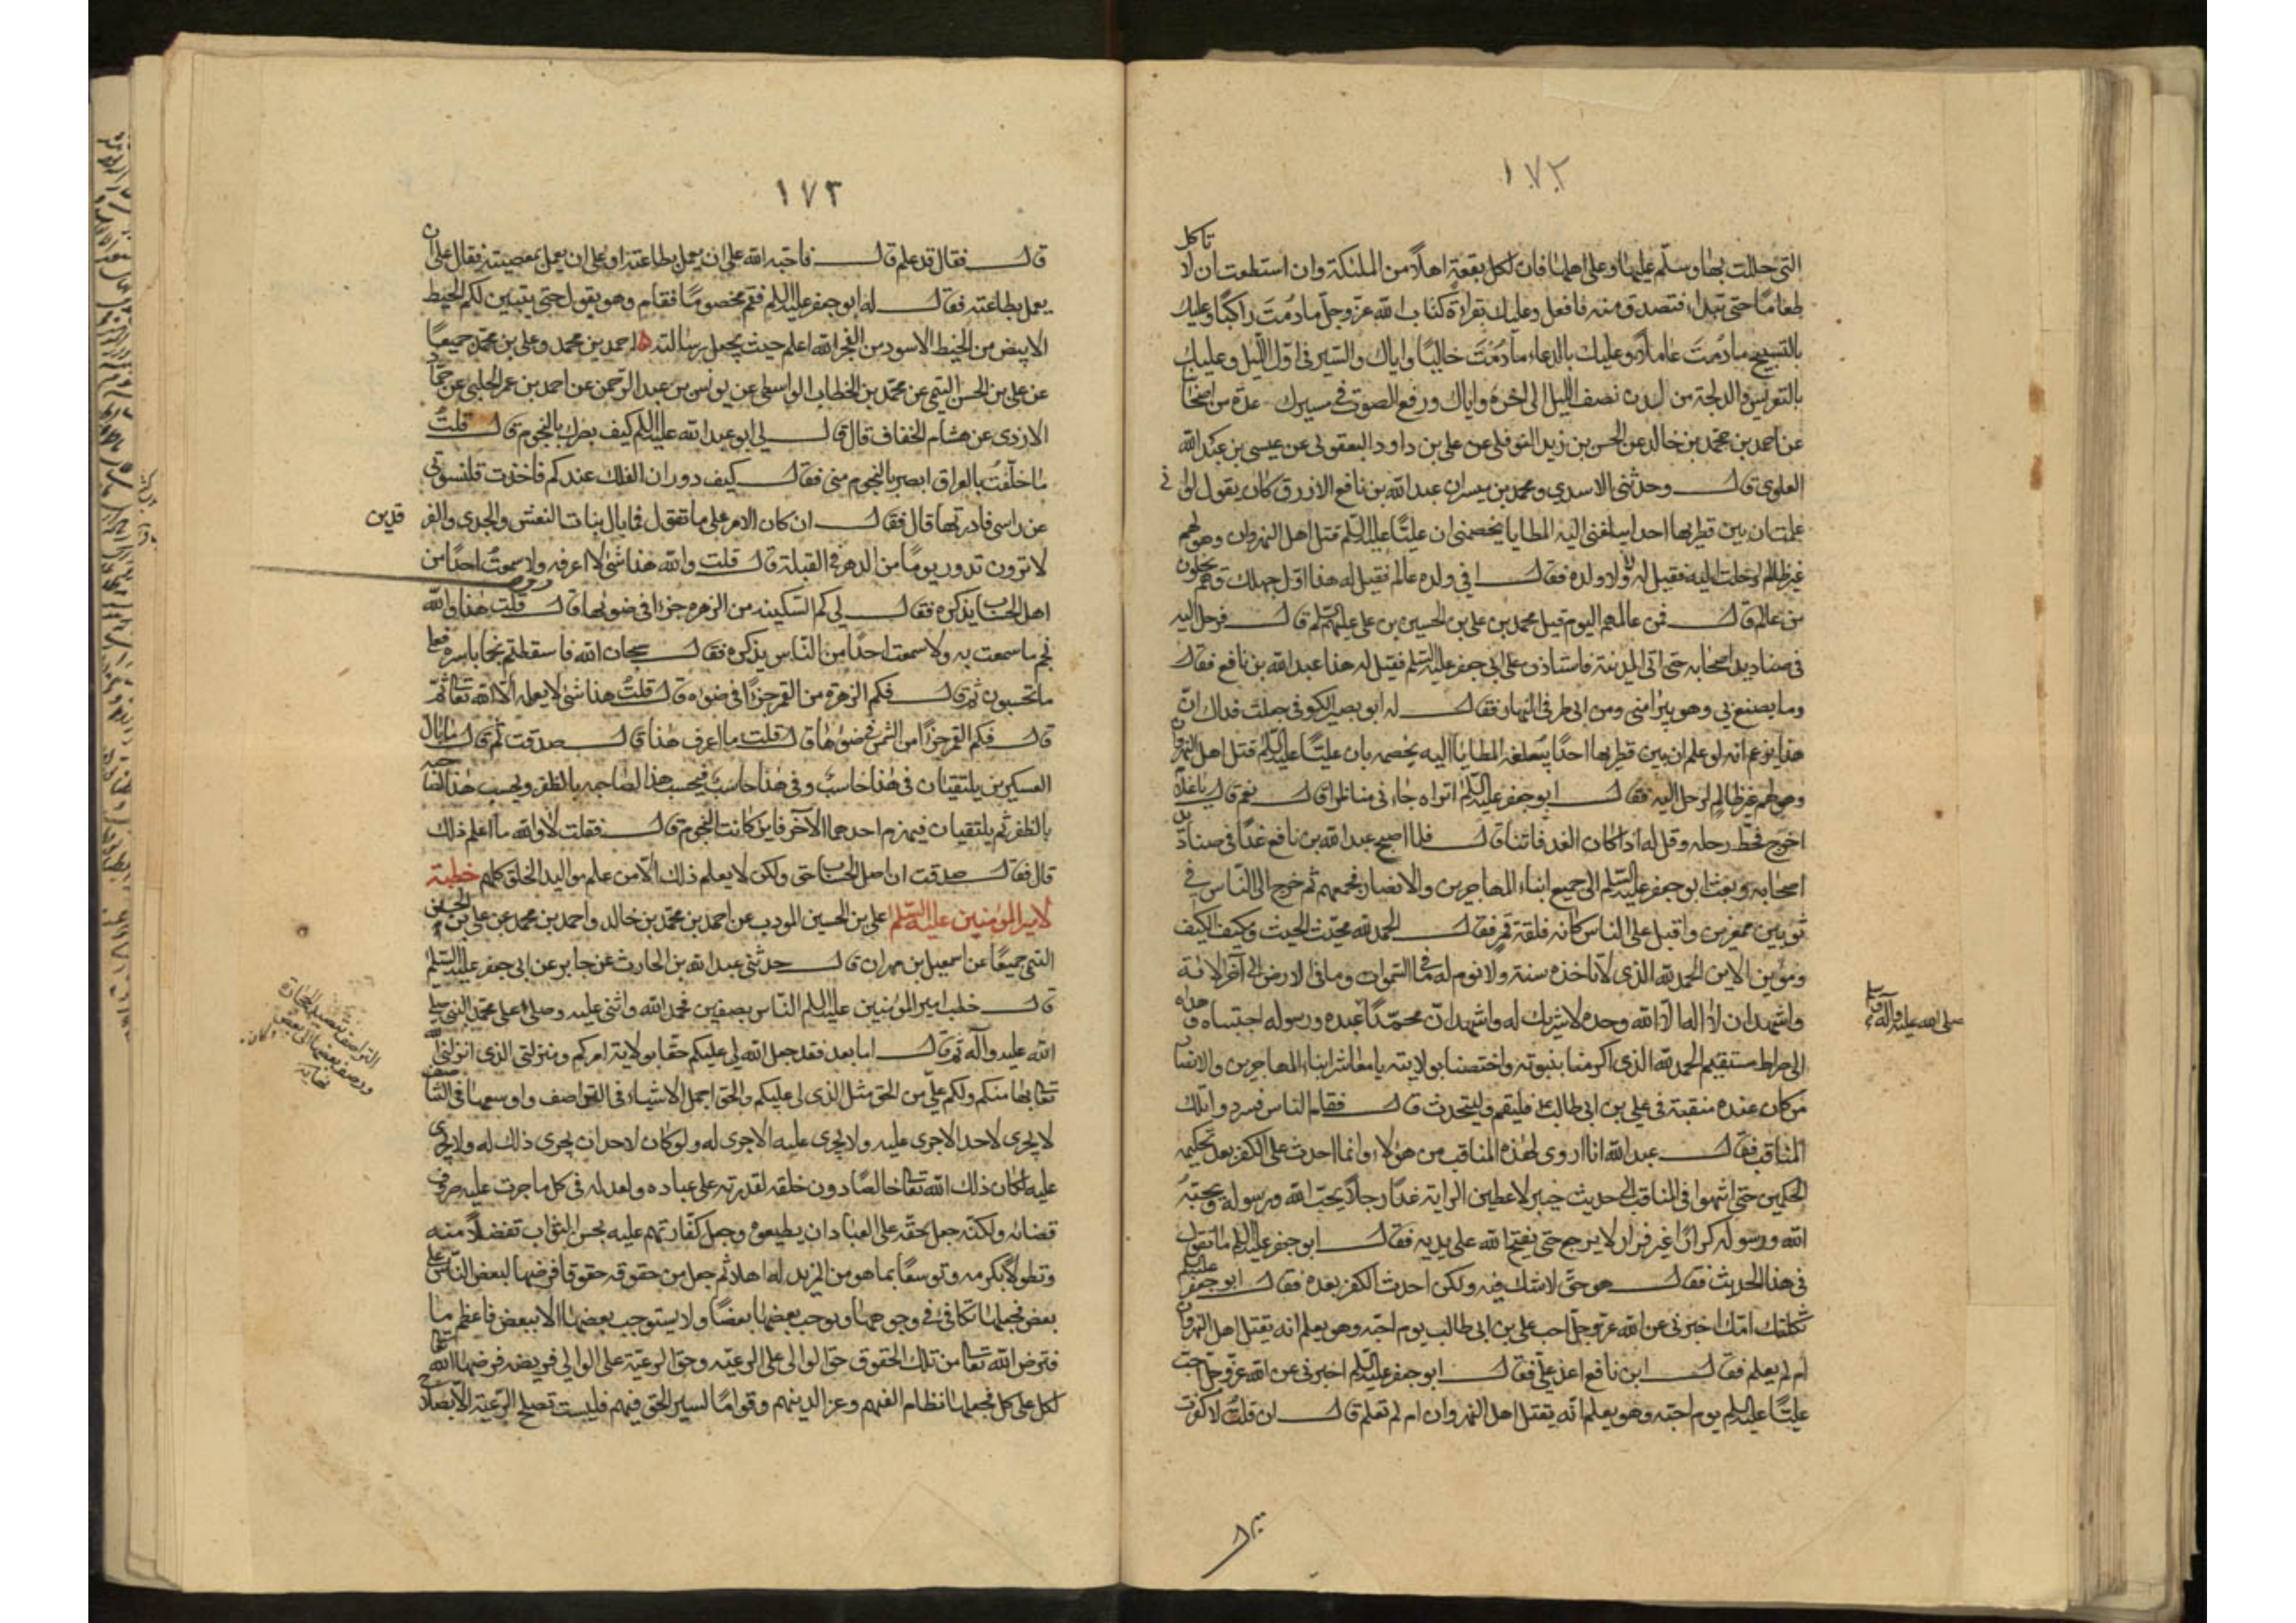 ١٧٢
تاكل
التى حللت بها وسلم عليها وعلى اهلها فان لكل بقعة اهلاً من الملئكة وان استطعت ان لا
طعاما حتى تبدا فتصدق منه فافعل وعليك بقراءة كتاب الله عز وجل ما دمت راكبا وعليك
بالتسبيح ما دمت عاملا وعليك بالدعاء ما دمت خاليا واياك والسير فى اول الليل وعليك
بالتعريس والدلجة من لدن نصف الليل الى اخره واياك ورفع الصوت فى مسيرك عدة من اصحابنا
عن احمد بن محمد بن خالد عن الحسن بن زيد النوفلى عن على بن داود اليعقوبى عن عيسى بن عبد الله
العلوى قال وحدثنى الاسيدي ومحمد بن مبشر ان عبد الله بن نافع الازرق كان يقول لو انى
علمت ان بين قطريها احدا يبلغنى اليه المطايا يخصمنى ان عليّاً عليه السلم قتل اهل النهروان وهو لهم
غير ظالم لرحلت اليه فقيل له ولا ولده فقال افى ولده عالم فقيل له هذا اول جهلك وهم يخلون
من عالم قال فمن عالمهم اليوم قيل محمد بن على بن الحسين بن على عليهم السلم قال فرحل اليه
فى صناديد اصحابه حتى اتى المدينة فاستاذن على ابى جعفر عليه السلم فقيل له هذا عبد الله بن نافع فقال
وما يصنع بي وهو يبرا منى ومن ابى طرفى النهار فقال له ابو بصير الكوفى جعلت فداك ان
هذا يزعم انه لو علم ان بين قطريها احدًا تبلغه المطايا اليه يخصمه بان عليّاً عليه السلم قتل اهل النهروان
وهو لهم غير ظالم لرحل اليه فقال ابو جعفر عليه السلم اتراه جاءنى مناظرا قال نعم قال يا غلام
اخرج فحط رحله وقل له اذا كان الغد فاتنا قال فلما اصبح عبد الله بن نافع غدا فى صناديد
اصحابه وبعث ابو جعفر عليه السلم الى جميع ابناء المهاجرين والانصار فجمعهم ثم خرج الى الناس فى
ثوبين ممغرين واقبل على الناس كانه فلقة قمر فقال الحمد لله محيث الحيث ومكيف الكيف
ومؤين الاين الحمد لله الذى لا تاخذه سنة ولا نوم له ما فى السموات وما فى الارض الى آخر الاية
واشهد ان لا اله الا الله وحده لا شريك له واشهد ان محمّداً عبده ورسوله اجتباه وهداه
صلى الله عليه وآله
الى صراط مستقيم الحمد لله الذى اكرمنا بنبوته واختصنا بولايته يا معاشر ابناء المهاجرين والانصار
من كان عنده منقبة فى على بن ابى طالب فليقم وليتحدث قال فقام الناس فسردوا تلك
المناقب فقال عبد الله انا اروى لهذه المناقب من هولاء وانما احدث على الكفر بعد تحكيمه
الحكمين حتى انتهوا فى المناقب الى حديث خيبر لاعطين الراية غدا رجلا يحب الله ورسوله ويحبه
الله ورسوله كرارًا غير فرار لا يرجع حتى يفتح الله على يديه فقال ابو جعفر عليه السلم ما تقول
فى هذا الحديث فقال هو حق لا شك فيه ولكن احدث الكفر بعده فقال ابو جعفر عليه السلم
ثكلتك امك اخبرنى عن الله عز وجل احب على بن ابى طالب يوم احبه وهو يعلم انه يقتل اهل النهروان
ام لم يعلم فقال ابن نافع اعد علي فقال ابو جعفر عليه السلم اخبرنى عن الله عز وجل احب
عليّاً عليه السلم يوم احبه وهو يعلم انه يقتل اهل النهروان ام لم تعلم قال ان قلت لا كفرت
١٧٣
قال فقال قد علم قال فاحبه الله على ان يعمل بطاعته او على ان يعمل بمعصيته فقال على ان
يعمل بطاعته فقال له ابو جعفر عليه السلم فقم مخصوما فقام وهو يقول حتى يتبين لكم الخيط
الابيض من الخيط الاسود من الفجر الله اعلم حيث يجعل رسالته احمد بن محمد وعلى بن محمد جميعاً
عن على بن الحسن التيمى عن محمد بن الخطاب الواسطى عن يونس بن عبد الرحمن عن احمد بن عمر الحلبى عن حماد
الازدى عن هشام الخفاف قال قال لى ابو عبد الله عليه السلم كيف بصرك بالنجوم قال قلت
ما خلّفت بالعراق ابصر بالنجوم منى فقال كيف دوران الفلك عندكم فاخذت قلنسوتى
عن راسى فادرتها قال فقال ان كان الامر على ما تقول فما بال بنات النعش والجدى والفرقدين
لا ترون تدور يوما من الدهر فى القبلة قال قلت والله هذا شئ لا اعرفه ولا سمعت احدًا من
اهل الحساب يذكره فقال لى كم السكينة من الزهرة جزءا فى ضوئها قال قلت هذا والله
نجم ما سمعت به ولا سمعت احدًا من الناس يذكره فقال سبحان الله فاسقطتم نجما باسره فعلى
ما تحسبون ثم قال فكم الزهرة من القمر جزءًا فى ضوئه قال قلت هذا شئ لا يعلمه الا الله تعالى ثم
قال فكم القمر جزءًا من الشمس فى ضوئها قال قلت ما اعرف هذا قال صدقت ثم قال ما بال
العسكرين يلتقيان فى هذا حاسب وفى هذا حاسب فيحسب هذا لصاحبه بالظفر ويحسب هذا لصاحبه
بالظفر ثم يلتقيان فيهزم احدهما الآخر فاين كانت النجوم قال فقلت لا والله ما اعلم ذلك
قال فقال صدقت ان اصل الحساب حق ولكن لا يعلم ذلك الا من علم مواليد الخلق كلهم خطبة
لامير المؤمنين عليه السلم على بن الحسين المودب عن احمد بن محمد بن خالد واحمد بن محمد عن على بن الحسن
التيمى جميعًا عن اسمعيل بن مهران قال حدثنى عبد الله بن الحارث عن جابر عن ابى جعفر عليه السلم
قال خطب امير المؤمنين عليه السلم الناس بصفين فحمد الله واثنى عليه وصلى على محمد النبى صلى
الله عليه وآله ثم قال اما بعد فقد جعل الله لى عليكم حقا بولاية امركم ومنزلتى الذى انزلنى الله
تعالى بها منكم ولكم علي من الحق مثل الذى لى عليكم والحق اجمل الاشياء فى التواصف واوسعها فى التناصف
لا يجرى لاحد الا جرى عليه ولا يجرى عليه الا جرى له ولو كان لاحد ان يجرى ذلك له ولا يجرى
عليه لكان ذلك الله تعالى خالصًا دون خلقه لقدرته على عباده ولعدله فى كل ما جرت عليه صروف
قضائه ولكنه جعل حقه على العباد ان يطيعوه وجعل كفارتهم عليه بحسن الثواب تفضلاً منه
وتطولا بكرمه وتوسعًا بما هو من المزيد له اهلا ثم جعل من حقوقه حقوقا فرضها لبعض الناس على
بعض فجعلها تكافئ فى وجوهها ويوجب بعضها بعضًا ولا يستوجب بعضها الا ببعض فاعظم ما
افترض الله تعالى من تلك الحقوق حق الوالى على الرعية وحق الرعية على الوالى فريضة فرضها الله تعالى
لكل على كل فجعلها نظام الفتهم وعزا لدينهم وقواما لسير الحق فيهم فليست تصلح الرعية الا بصلاح